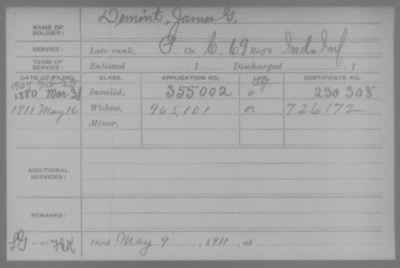 NAME OF SOLDIER: Demint, James G.
SERVICE: Late rank, P Co. C, 69 Reg't Ind. Inf
TERM OF SERVICE: Enlisted , 1 Discharged , 1
DATE OF FILING. CLASS. APPLICATION NO. CERTIFICATE NO.
1880 Mar 31 Invalid, 355002 230308
1911 May 16 Widow, 965,101 726172
Minor,
ADDITIONAL SERVICES:
REMARKS:
Died May 9, 1911, at